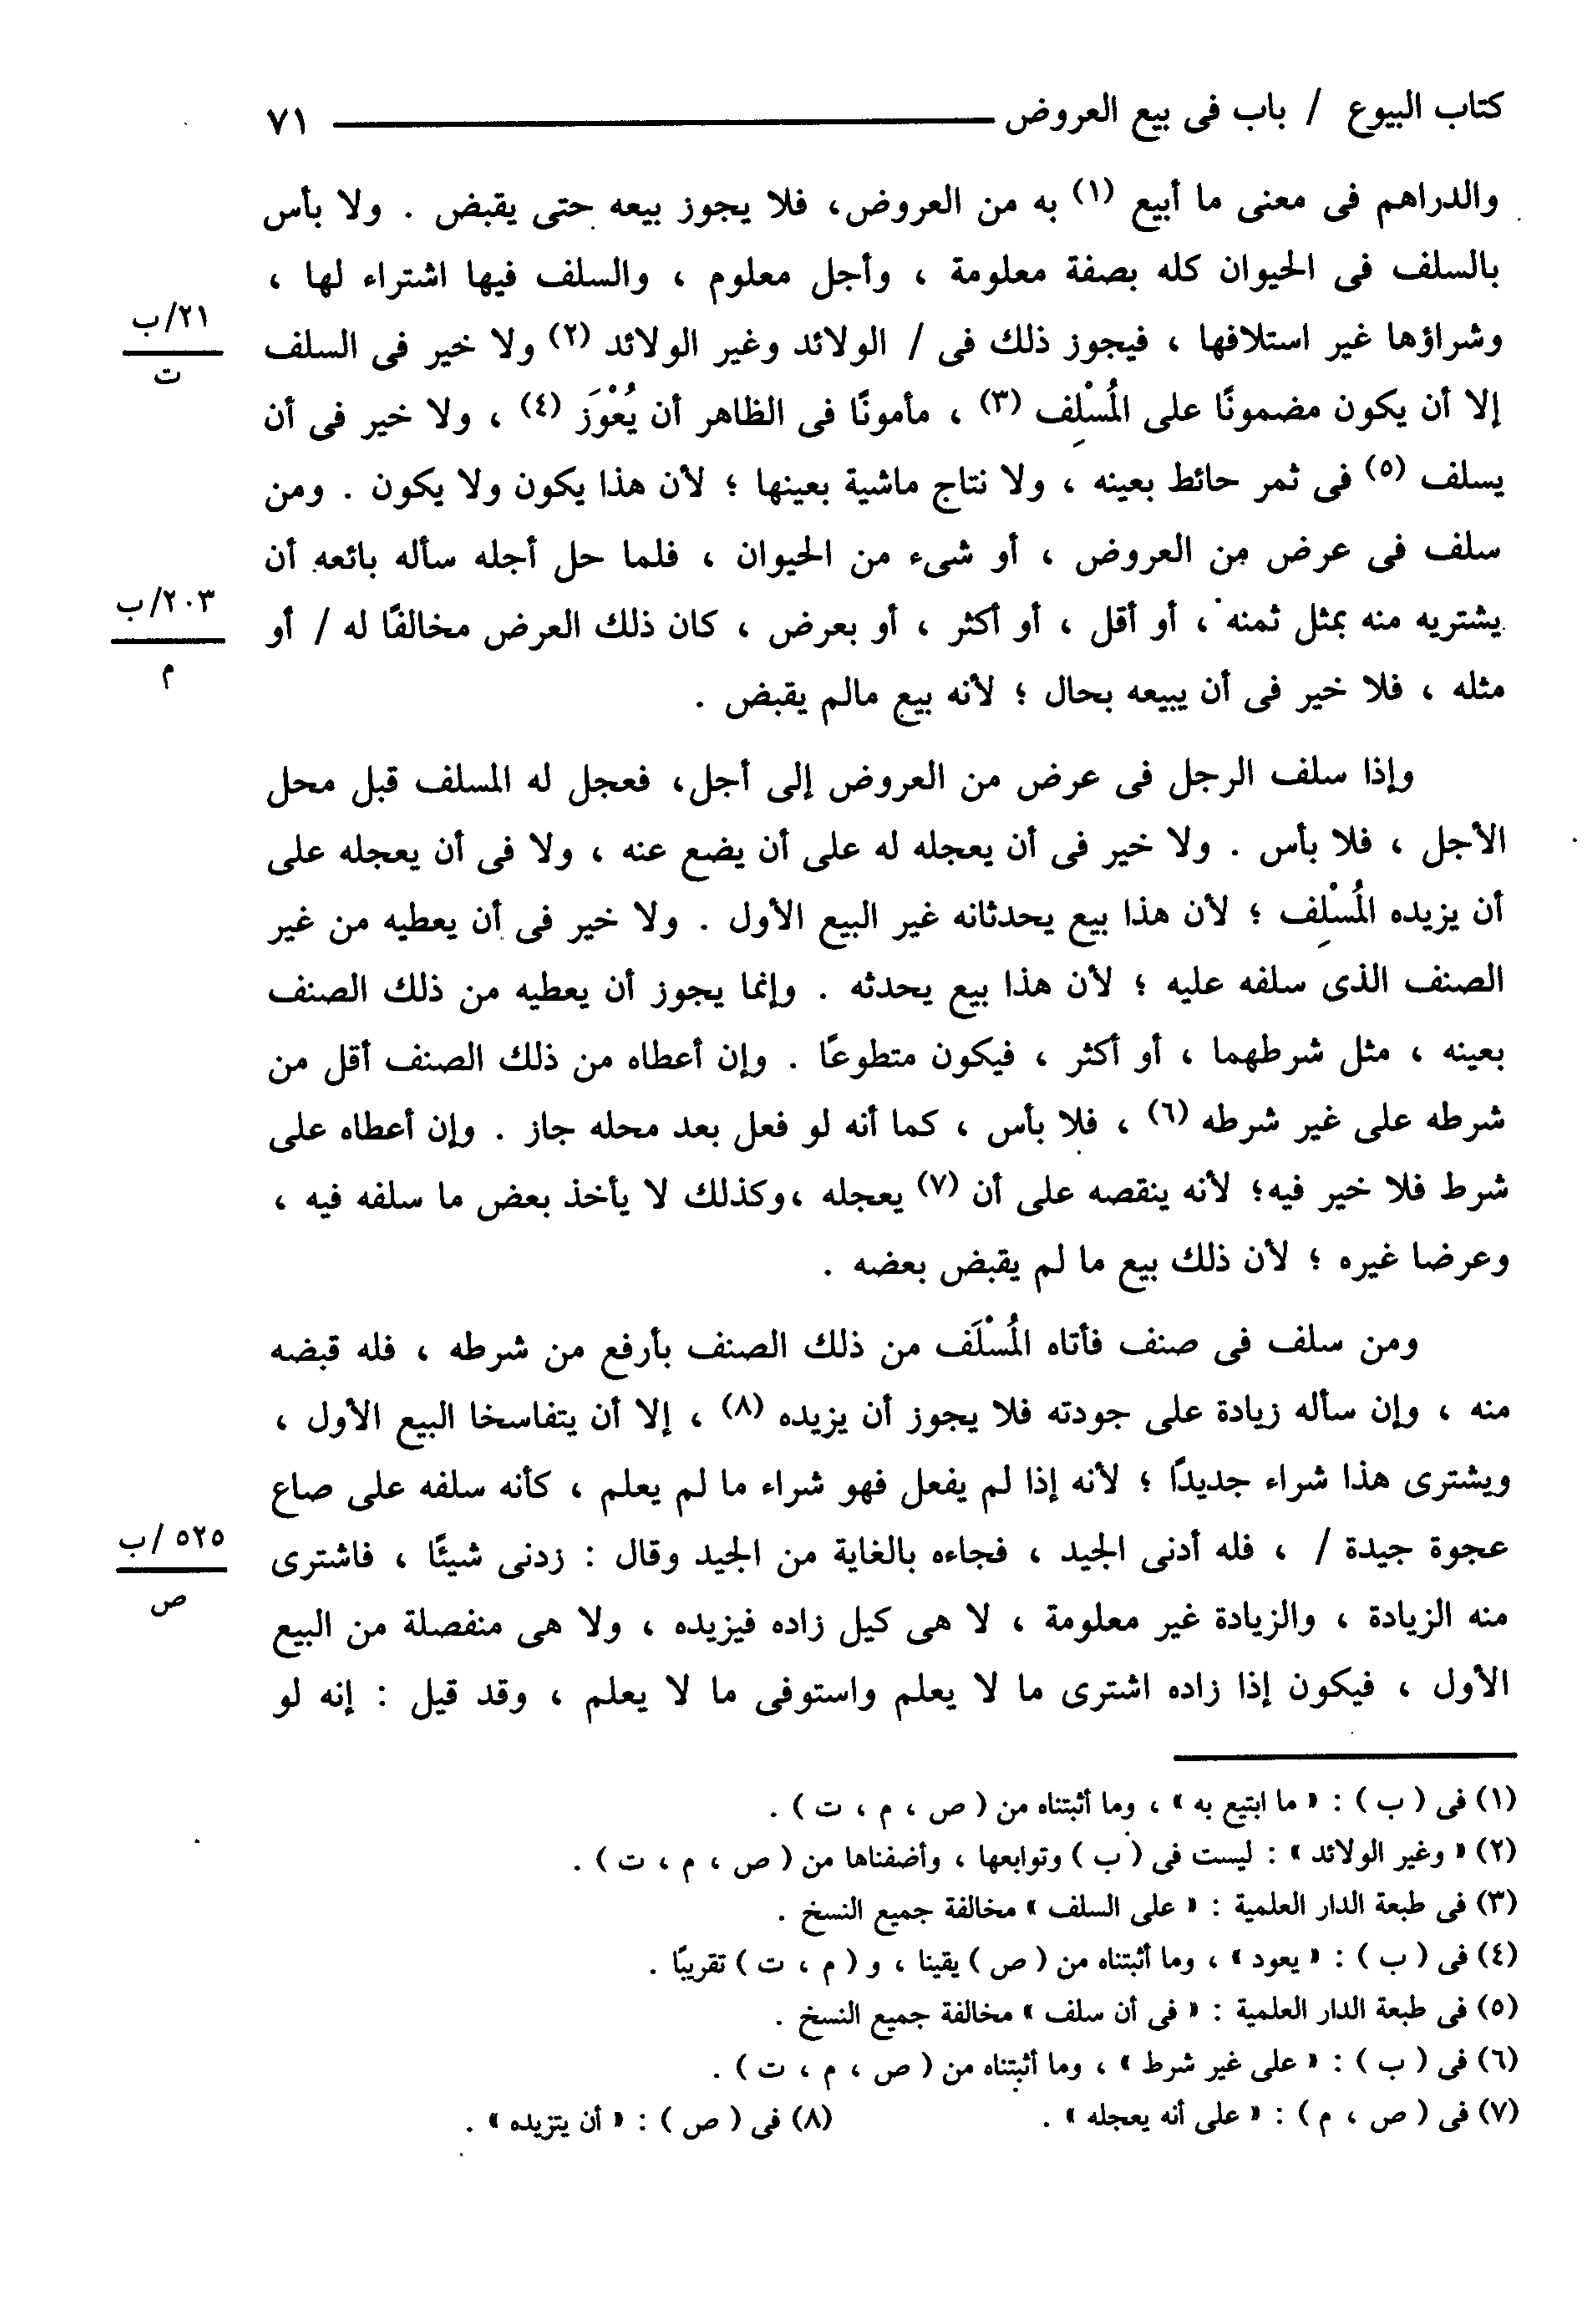 كتاب البيوع / باب فى بيع العروض ٧١
والدراهم فى معنى ما أبيع (١) به من العروض، فلا يجوز بيعه حتى يقبض . ولا بأس
بالسلف فى الحيوان كله بصفة معلومة ، وأجل معلوم ، والسلف فيها اشتراء لها ،
وشراؤها غير استلافها ، فيجوز ذلك فى / الولائد وغير الولائد (٢) ولا خير فى السلف
٢١/ب
ت
إلا أن يكون مضمونًا على المُسْلِف (٣) ، مأمونًا فى الظاهر أن يُعْوَز (٤) ، ولا خير فى أن
يسلف (٥) فى ثمر حائط بعينه ، ولا نتاج ماشية بعينها ؛ لأن هذا يكون ولا يكون . ومن
سلف فى عرض من العروض ، أو شىء من الحيوان ، فلما حل أجله سأله بائعه أن
يشتريه منه بمثل ثمنه ، أو أقل ، أو أكثر ، أو بعرض ، كان ذلك العرض مخالفًا له / أو
٢٠٣/ب
م
مثله ، فلا خير فى أن يبيعه بحال ؛ لأنه بيع مالم يقبض .
وإذا سلف الرجل فى عرض من العروض إلى أجل، فعجل له المسلف قبل محل
الأجل ، فلا بأس . ولا خير فى أن يعجله له على أن يضع عنه ، ولا فى أن يعجله على
أن يزيده المُسْلِف ؛ لأن هذا بيع يحدثانه غير البيع الأول . ولا خير فى أن يعطيه من غير
الصنف الذى سلفه عليه ؛ لأن هذا بيع يحدثه . وإنما يجوز أن يعطيه من ذلك الصنف
بعينه ، مثل شرطهما ، أو أكثر ، فيكون متطوعًا . وإن أعطاه من ذلك الصنف أقل من
شرطه على غير شرطه (٦) ، فلا بأس ، كما أنه لو فعل بعد محله جاز . وإن أعطاه على
شرط فلا خير فيه؛ لأنه ينقصه على أن (٧) يعجله ،وكذلك لا يأخذ بعض ما سلفه فيه ،
وعرضا غيره ؛ لأن ذلك بيع ما لم يقبض بعضه .
ومن سلف فى صنف فأتاه المُسْلَف من ذلك الصنف بأرفع من شرطه ، فله قبضه
منه ، وإن سأله زيادة على جودته فلا يجوز أن يزيده (٨) ، إلا أن يتفاسخا البيع الأول ،
ويشترى هذا شراء جديدًا ؛ لأنه إذا لم يفعل فهو شراء ما لم يعلم ، كأنه سلفه على صاع
عجوة جيدة / ، فله أدنى الجيد ، فجاءه بالغاية من الجيد وقال : زدنى شيئًا ، فاشترى
٥٢٥ /ب
ص
منه الزيادة ، والزيادة غير معلومة ، لا هى كيل زاده فيزيده ، ولا هى منفصلة من البيع
الأول ، فيكون إذا زاده اشترى ما لا يعلم واستوفى ما لا يعلم ، وقد قيل : إنه لو
(١) فى ( ب ) : « ما ابتيع به » ، وما أثبتناه من ( ص ، م ، ت ) .
(٢) « وغير الولائد » : ليست فى ( ب ) وتوابعها ، وأضفناها من ( ص ، م ، ت ) .
(٣) فى طبعة الدار العلمية : « على السلف » مخالفة جميع النسخ .
(٤) فى ( ب ) : « يعود » ، وما أثبتناه من ( ص ) يقينا ، و ( م ، ت ) تقريبًا .
(٥) فى طبعة الدار العلمية : « فى أن سلف » مخالفة جميع النسخ .
(٦) فى ( ب ) : « على غير شرط » ، وما أثبتناه من ( ص ، م ، ت ) .
(٧) فى ( ص ، م ) : « على أنه يعجله » . (٨) فى ( ص ) : « أن يتزيده » .